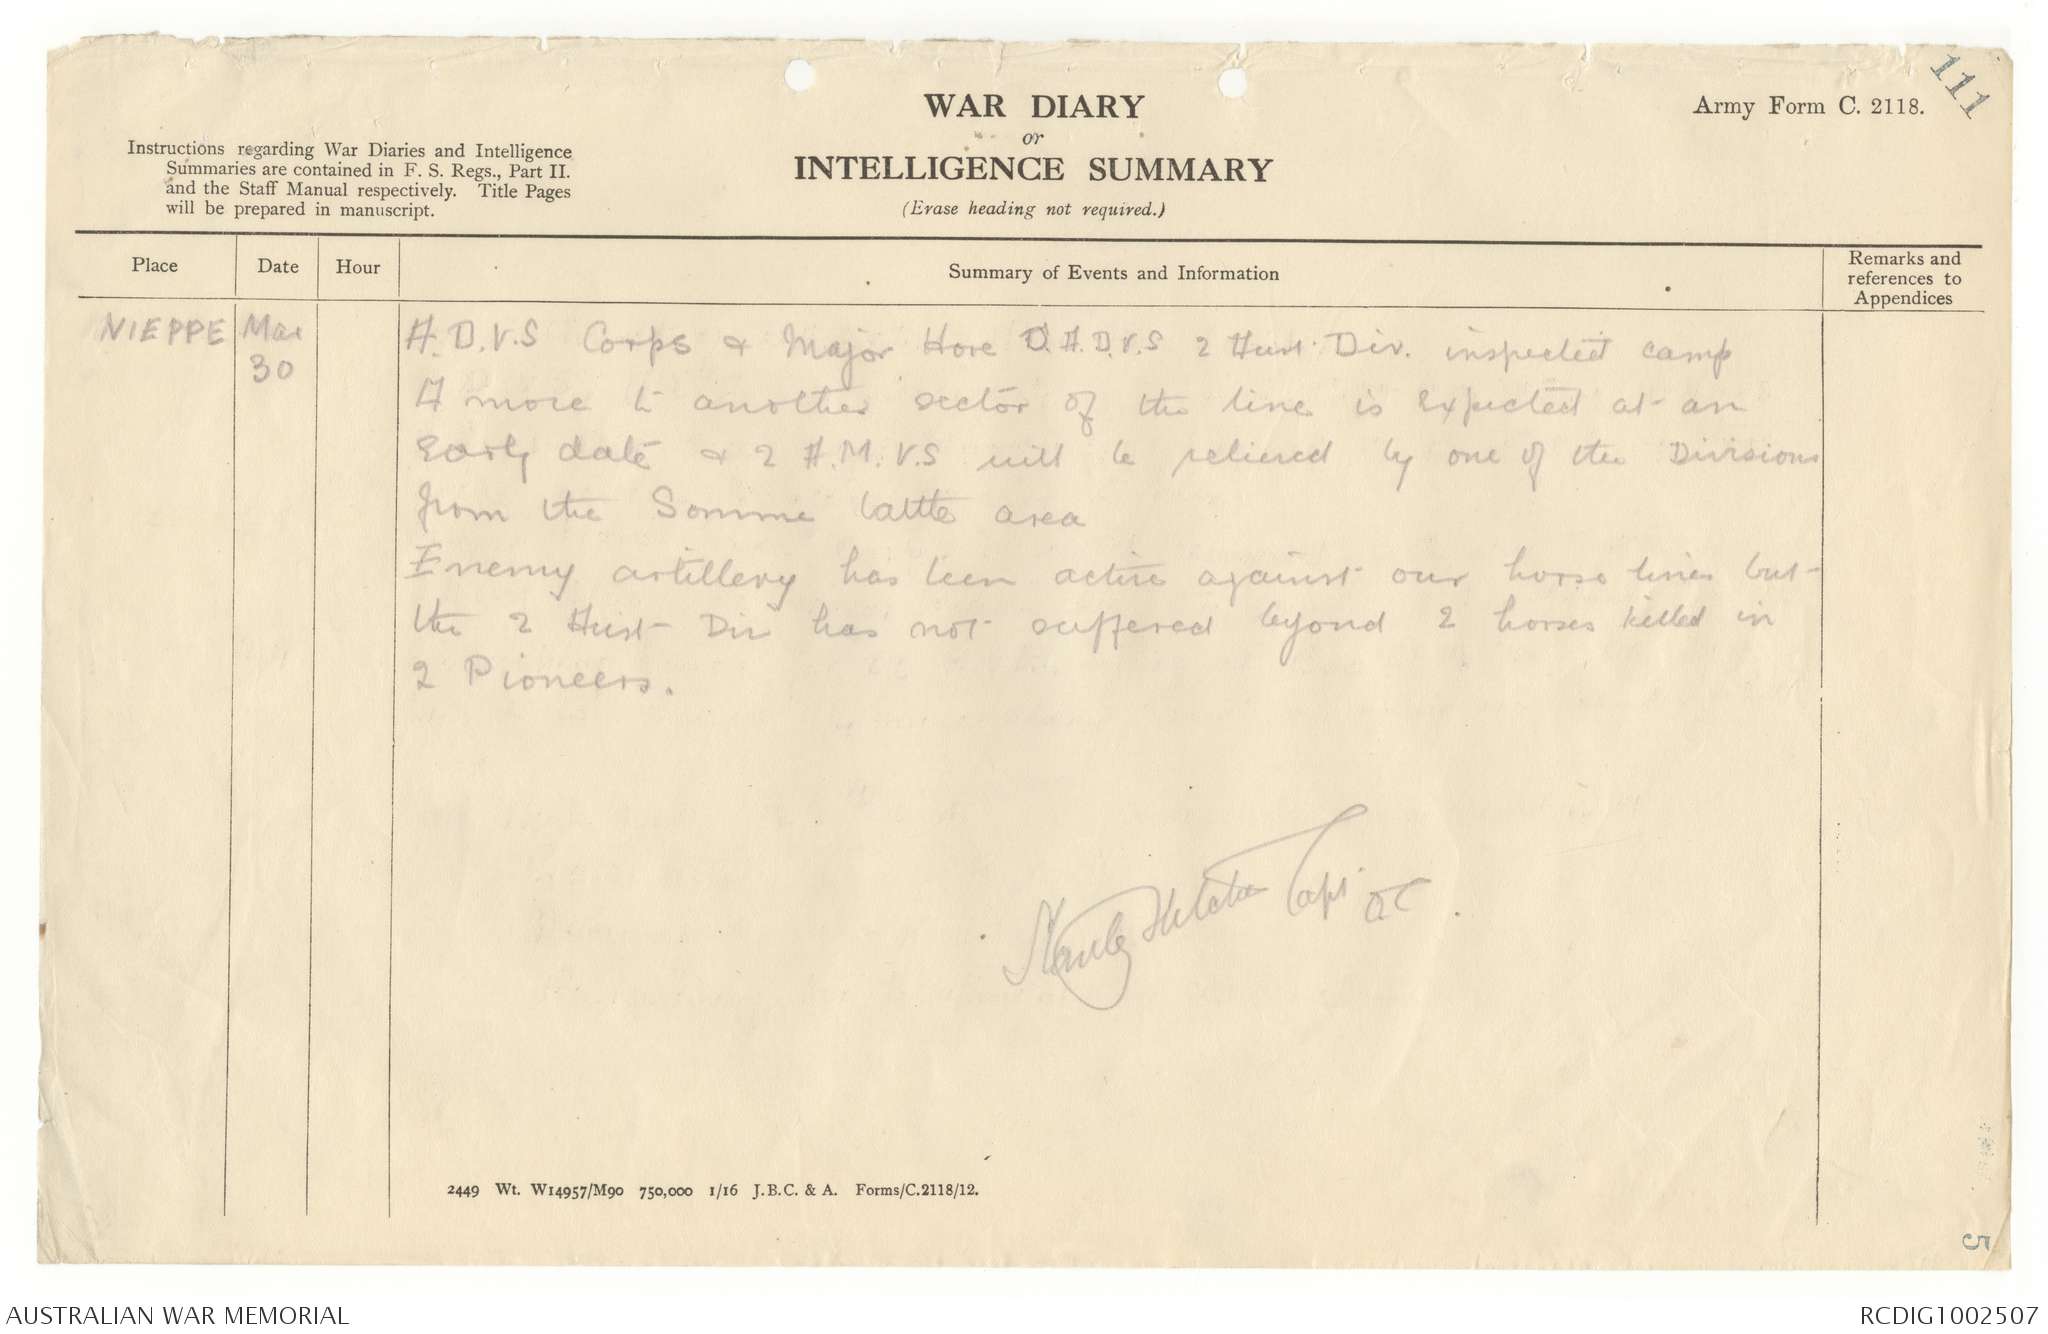 111
Army Form C. 2118.
WAR DIARY
or
INTELLIGENCE SUMMARY
(Erase heading not required.)
Instructions regarding War Diaries and Intelligence
Summaries are contained in F. S. Regs., Part II.
and the Staff Manual respectively. Title Pages
will be prepared in manuscript.
Place Date Hour Summary of Events and Information Remarks and references to Appendices
NIEPPE Mar 30 A.D.V.S Corps & Major Hore D.A.D.V.S 2 Aust Div. inspected camp
A move to another sector of the line is expected at an
early date & 2 A.M.V.S will be relieved by one of the Divisions
from the Somme battle area
Enemy artillery has been active against our horse lines but
the 2 Aust Div has not suffered beyond 2 horses killed in
2 Pioneers.
Stanley Capt OC.
2449 Wt. W14957/M90 750,000 1/16 J.B.C. & A. Forms/C.2118/12.
5
AUSTRALIAN WAR MEMORIAL RCDIG1002507